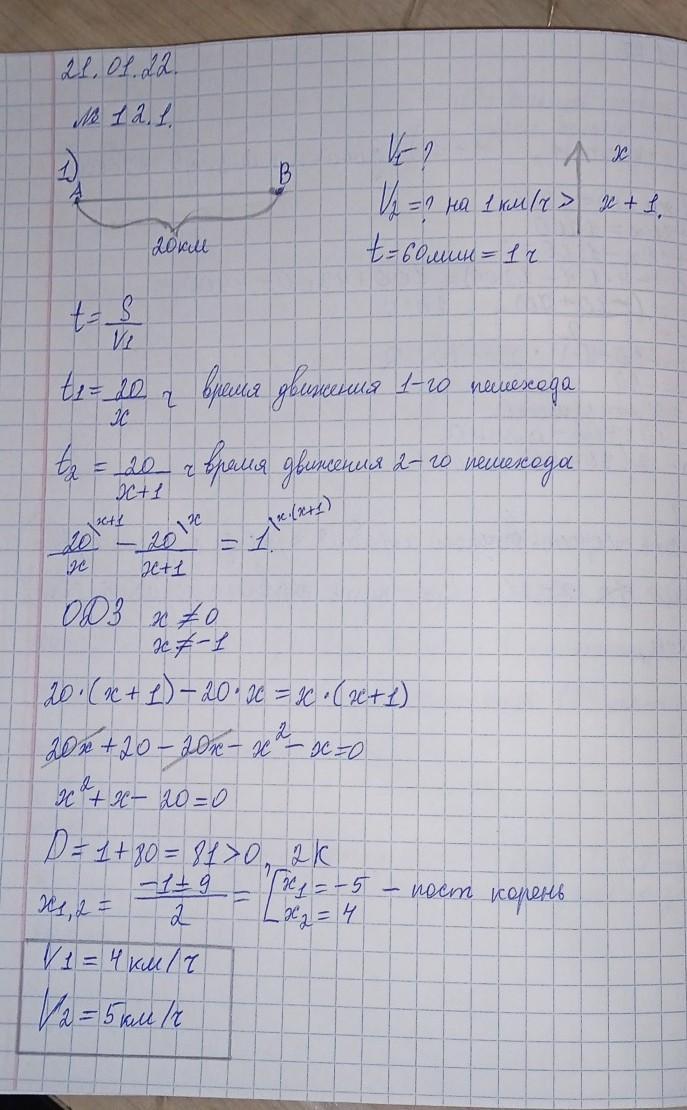 21.01.22.
№ 12.1.
1)
A B
20км
V1-?
x
V2=? на 1 км/ч > x+1.
t=60мин=1ч
t= S/V1
t1= 20/x ч время движения 1-го пешехода
t2 = 20/x+1 ч время движения 2-го пешехода
20/x \x+1 - 20/x+1 \x = 1. \x·(x+1)
ОДЗ x≠0
x≠-1
20·(x+1)-20·x=x·(x+1)
20x+20-20x-x²-x=0
x²+x-20=0
D=1+80=81>0, 2К
x1,2= -1±9/2 = [x1=-5 - пост корень
x2=4
V1=4км/ч
V2=5км/ч